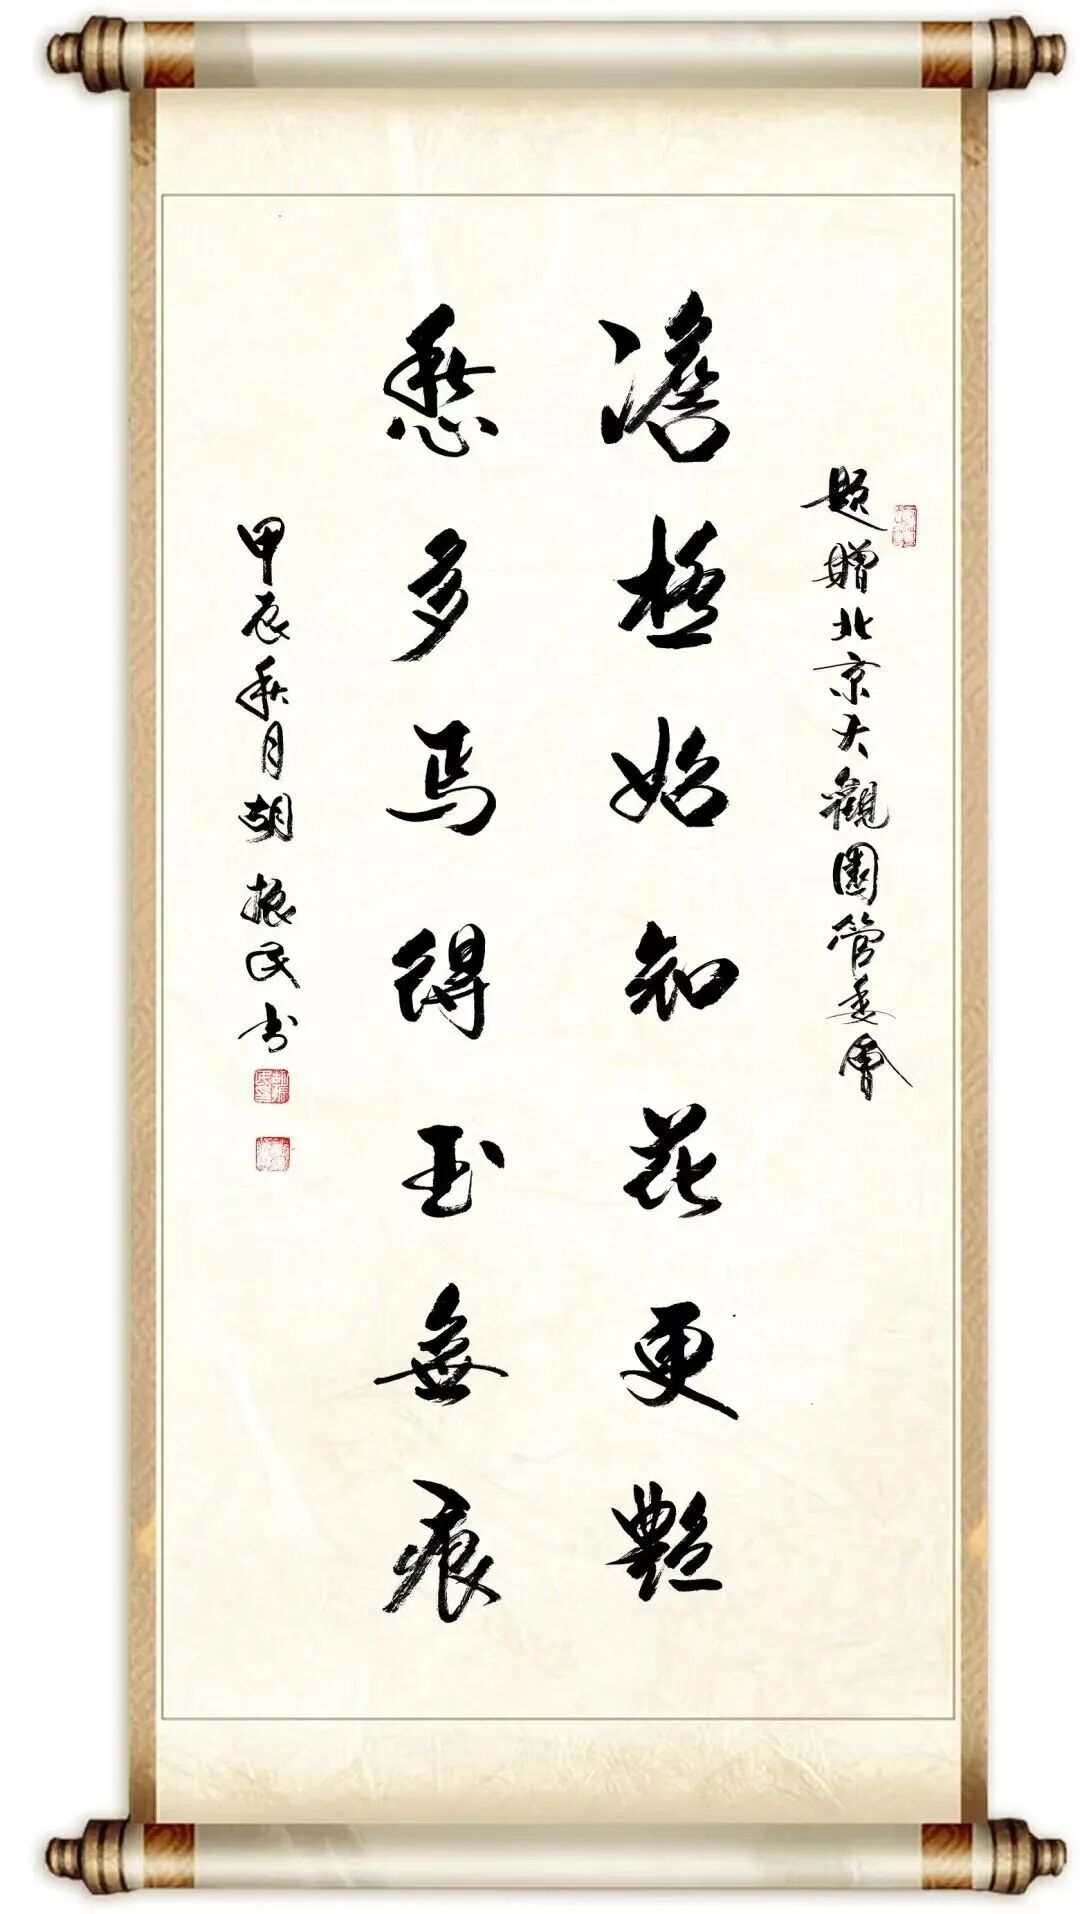 题赠北京大觀園管委會
澹極始知花更艷
愁多焉得玉無痕
甲辰秋月胡振民书